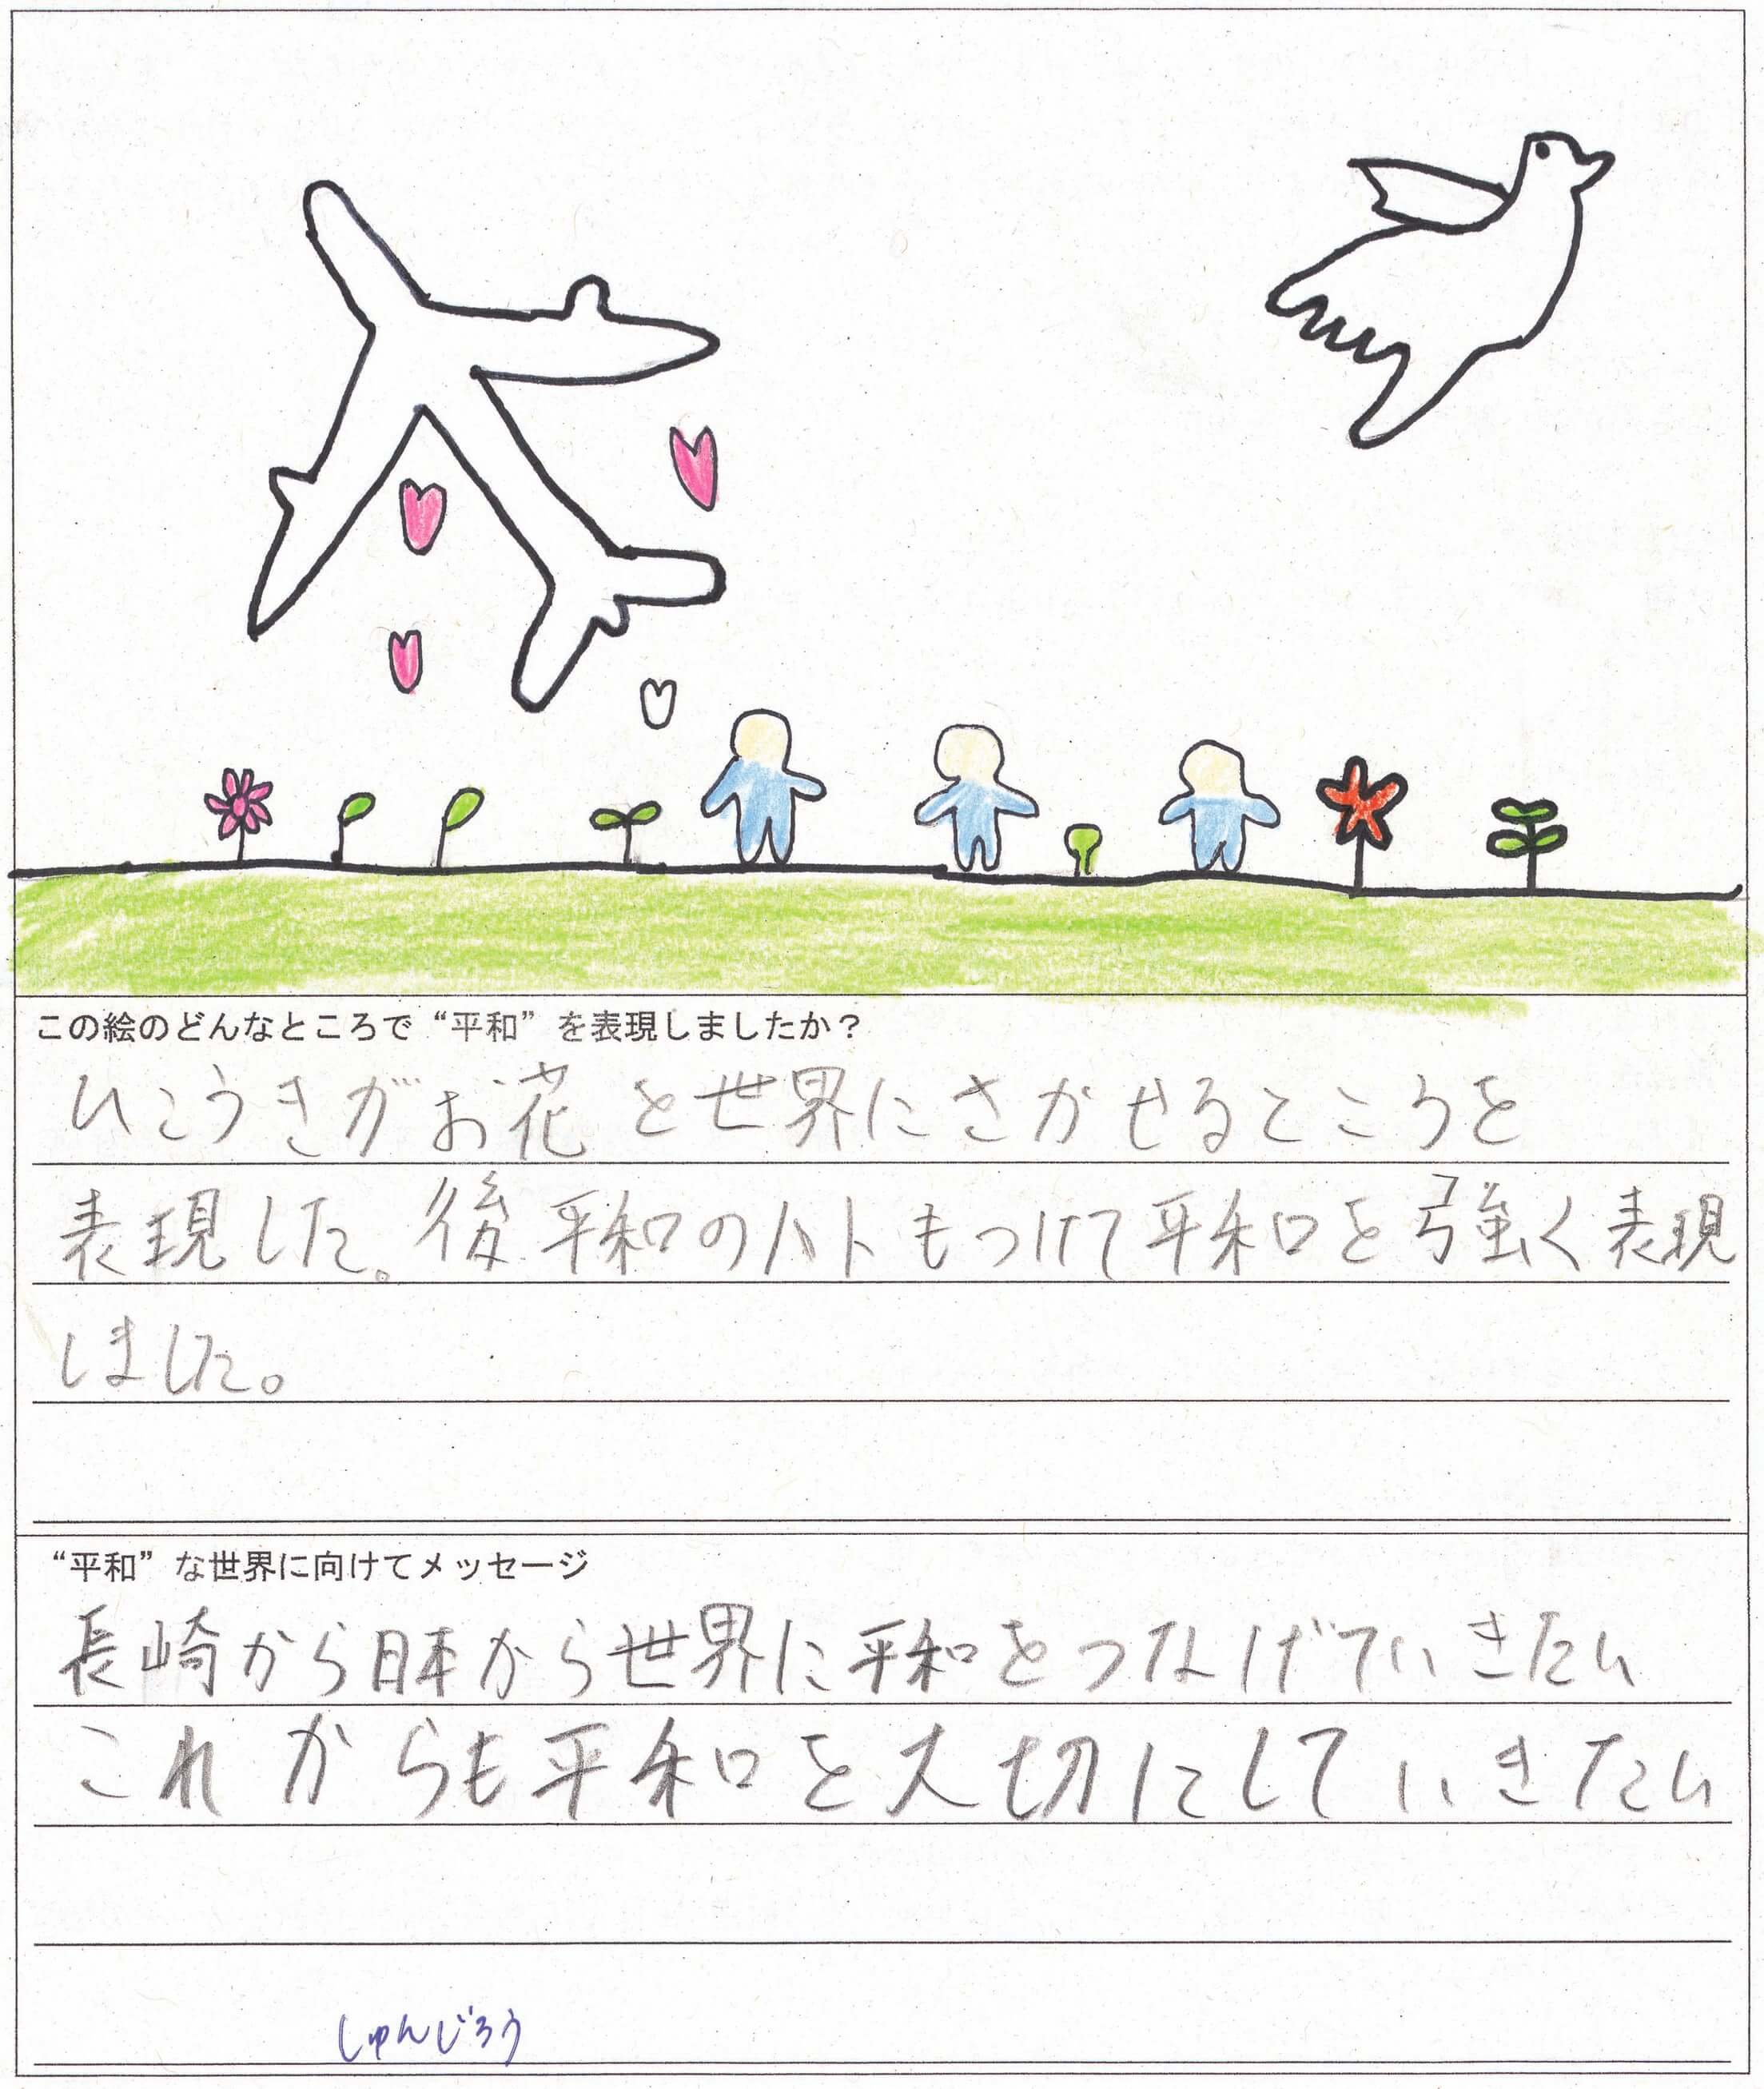 この絵のどんなところで“平和”を表現しましたか？
ひこうきがお花を世界にさかせるところを
表現した。後平和のハトもつけて平和を強く表現
しました。
“平和”な世界に向けてメッセージ
長崎から日本から世界に平和をつなげていきたい
これからも平和を大切にしていきたい
しゅんじろう